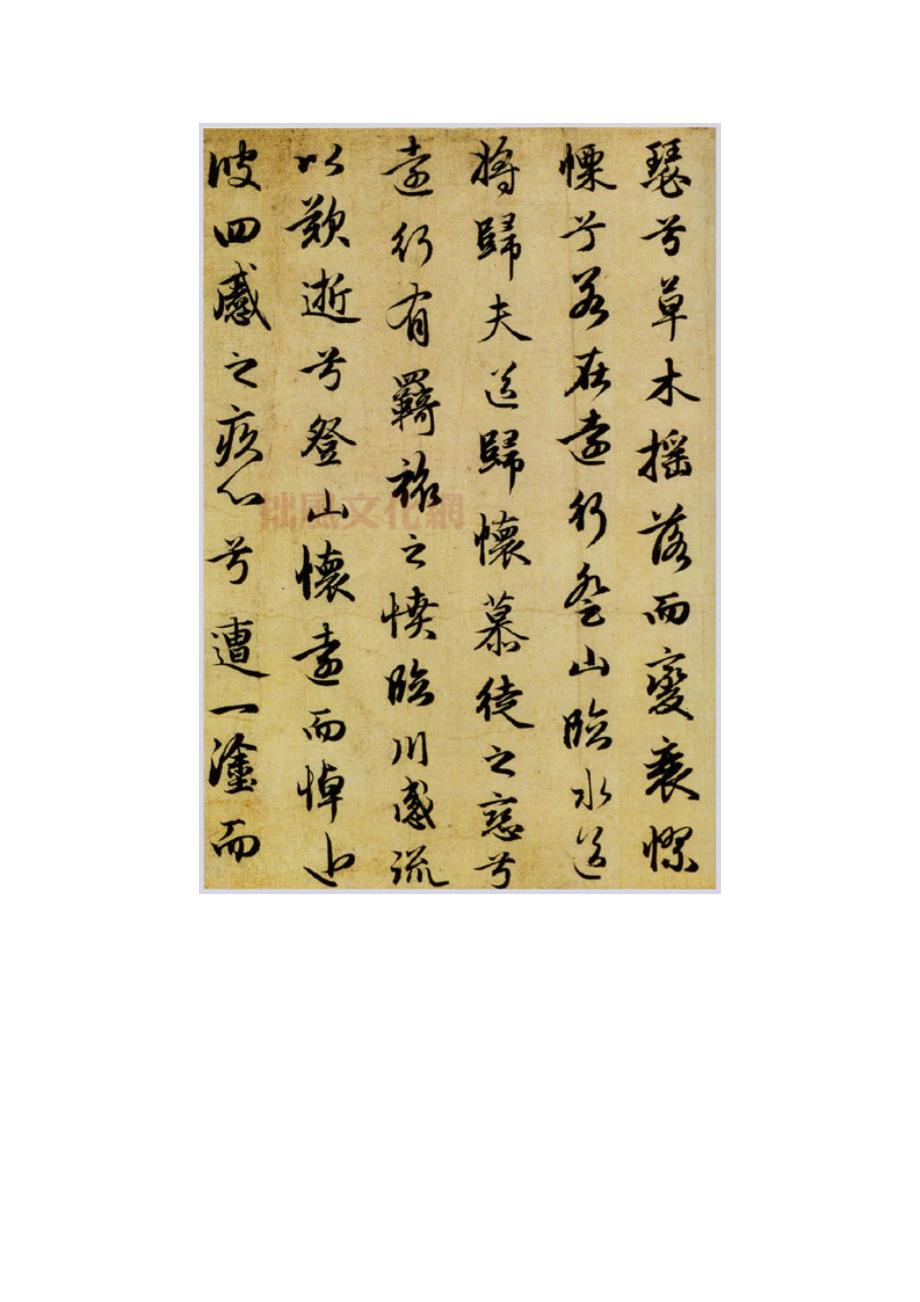 瑟兮草木搖落而變衰憀
慄兮若在遠行登山臨水送
將歸夫送歸懷慕徒之戀兮
遠行有羈旅之憤臨川感流
以歎逝兮登山懷遠而悼近
彼四慼之疚心兮遭一塗而
拙風文化網